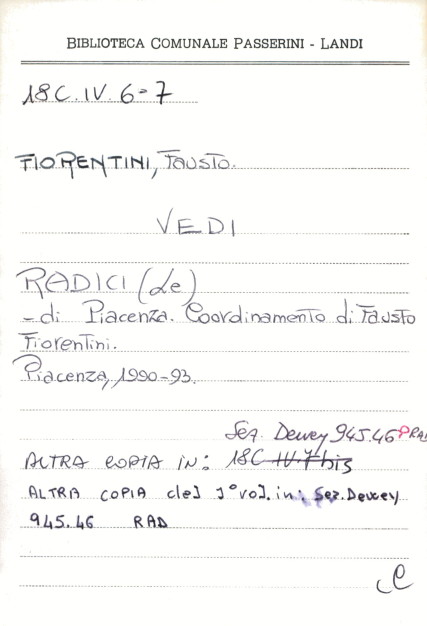 BIBLIOTECA COMUNALE PASSERINI - LANDI
18C.IV.6-7
FIORENTINI, Fausto.
VEDI
RADICI (Le)
- di Piacenza. Coordinamento di Fausto
Fiorentini.
Piacenza, 1990-93.
Sez. Dewey 945.46 PRAD
ALTRA COPIA IN: 18C IV.7 bis
ALTRA COPIA del 1° vol. in: Sez. Dewey
945.46 RAD